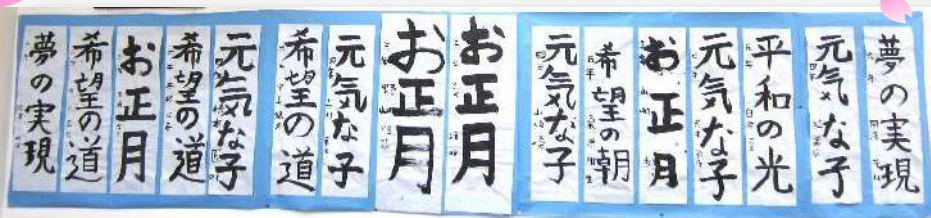 夢の実現
元気な子
平和の光
元気な子
お正月
希望の朝
元気な子
お正月
お正月
元気な子
希望の道
元気な子
希望の道
お正月
希望の道
夢の実現